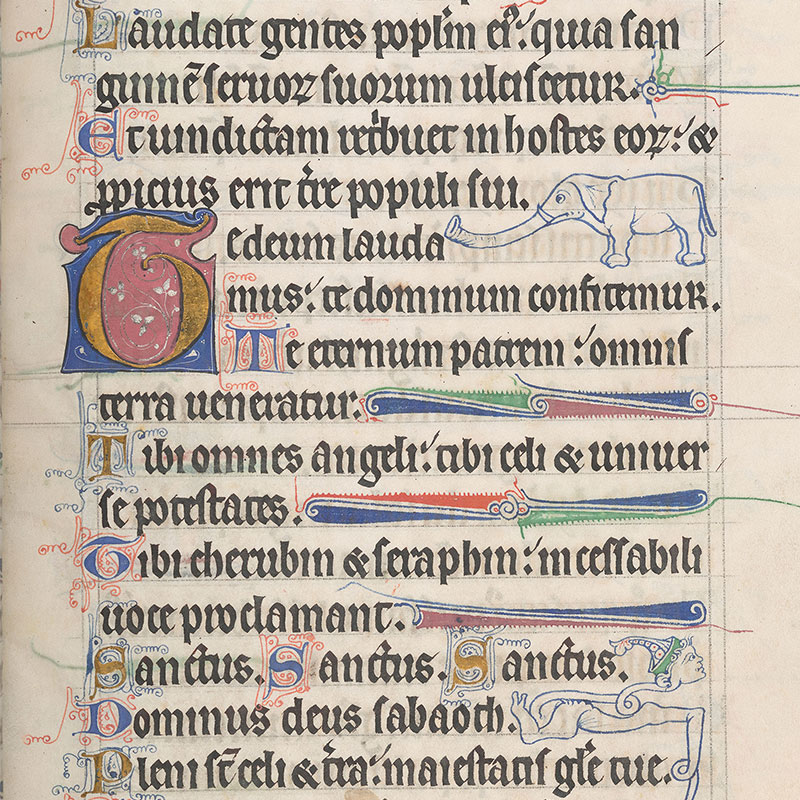 Laudate gentes popl̄m eiꝰ: quia san
guinē seruoꝝ suorum ulciscetur.
Et uindictam retͥbuet in hostes eoꝝ: &
ꝓpicius erit tr̄e populi sui.
Te deum lauda
mus: te dominum confitemur.
Te eternum patrem: omnis
terra ueneratur.
Tibi omnes angeli: tibi celi & uniuer
se potestates.
Tibi cherubin & seraphin: incessabili
uoce proclamant.
Sanctus. Sanctus. Sanctus.
Dominus deus sabaoth.
Pleni st̄ celi & tr̄a: maiestatis gl̄e tue.